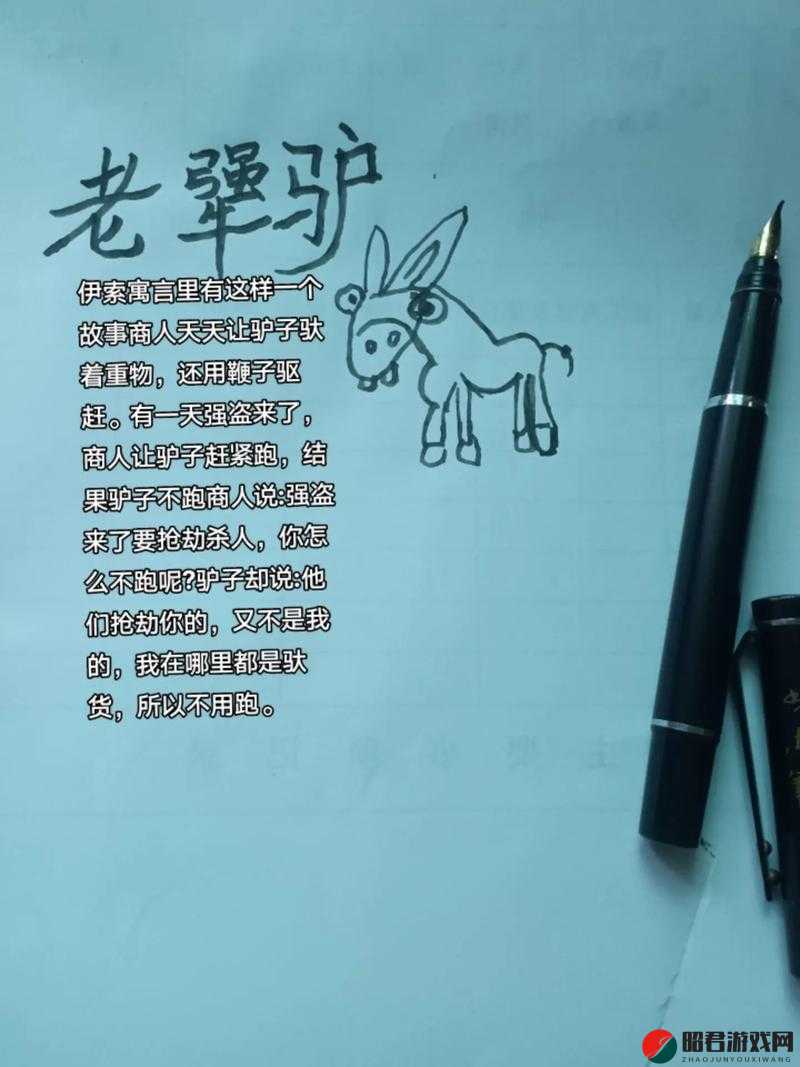 老犟驴
伊索寓言里有这样一个
故事商人天天让驴子驮
着重物，还用鞭子驱
赶。有一天强盗来了，
商人让驴子赶紧跑，结
果驴子不跑商人说:强盗
来了要抢劫杀人，你怎
么不跑呢?驴子却说:他
们抢劫你的，又不是我
的，我在哪里都是驮
货，所以不用跑。
昭君游戏网
ZHAOJUNYOUXIWANG